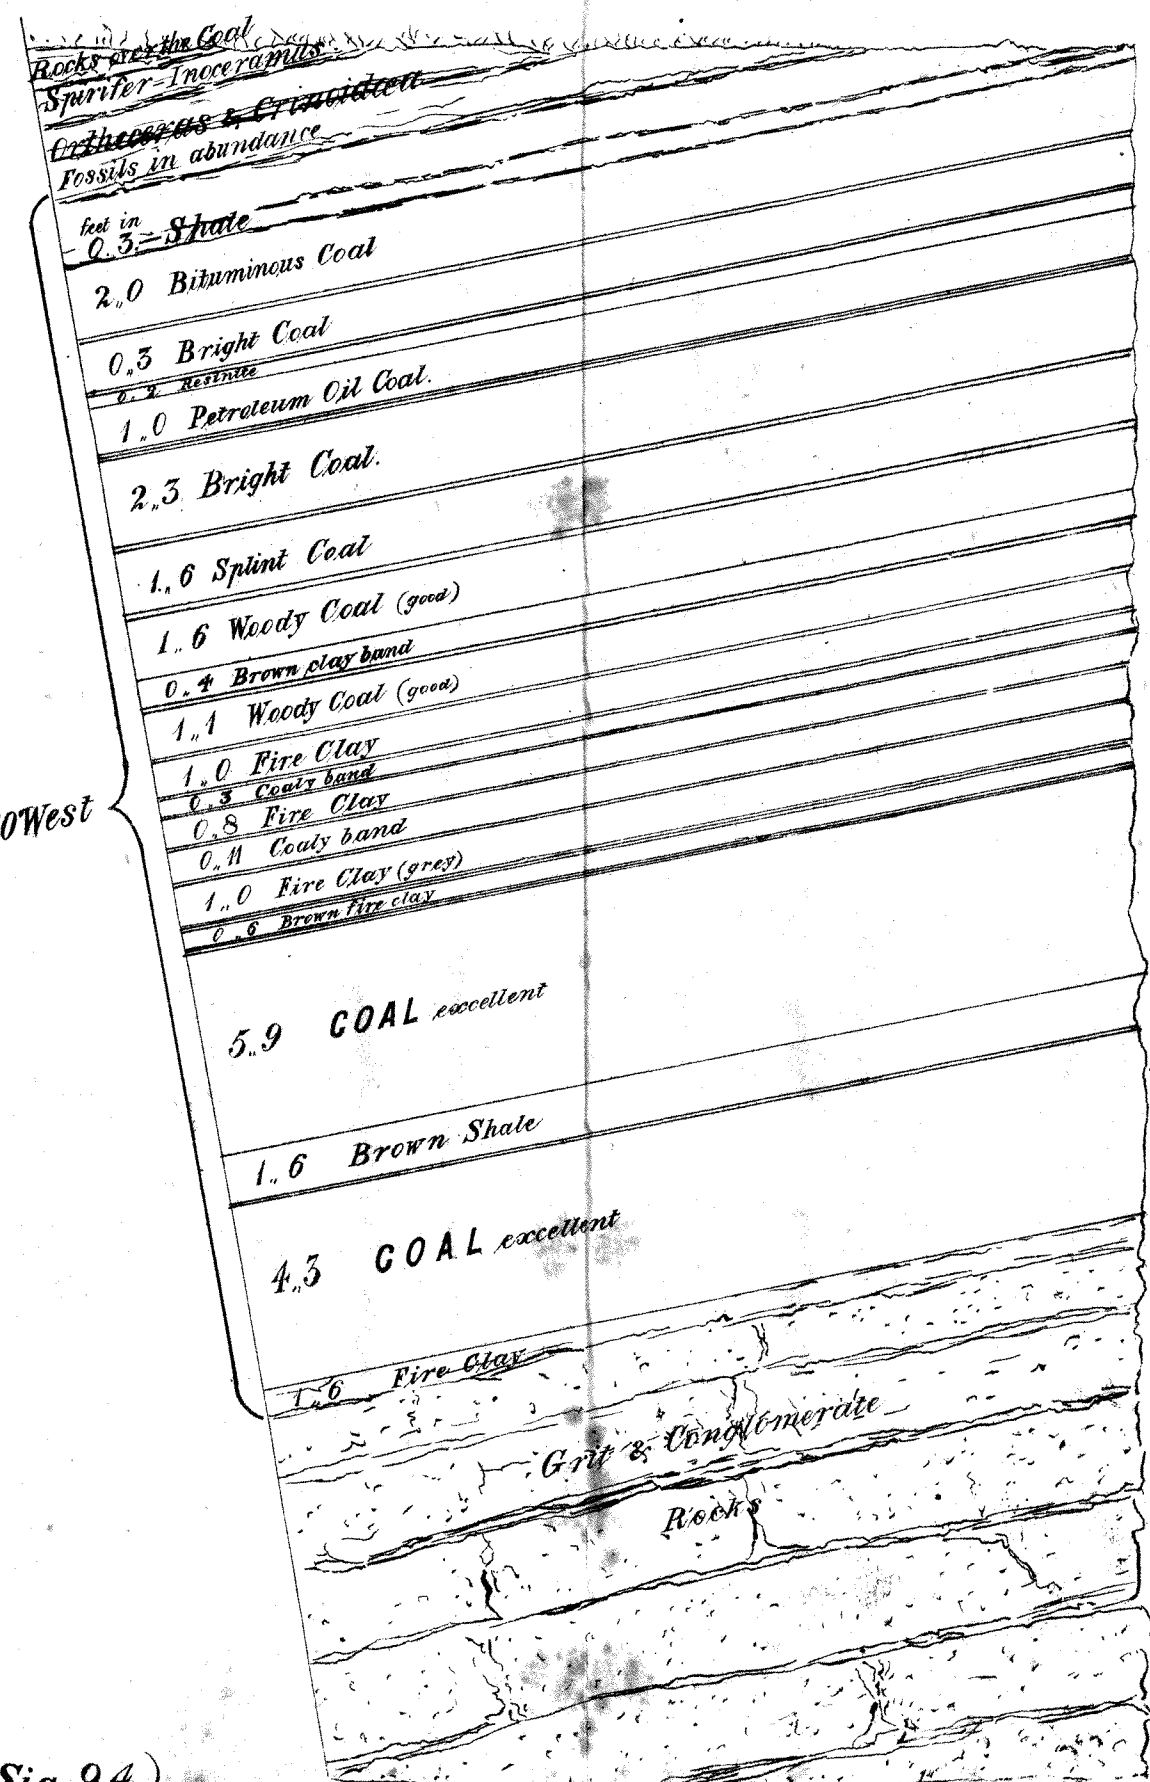 Rocks over the Coal
Spirifer-Inoceramus
Orthoceras & Crinoidea
Fossils in abundance
feet in
0.3.- Shale
2,,0 Bituminous Coal
0,,3 Bright Coal
0,,2 Resinite
1,,0 Petroleum Oil Coal.
2,,3 Bright Coal.
1,,6 Splint Coal
1,,6 Woody Coal (good)
0,,4 Brown clay band
1,,1 Woody Coal (good)
1,,0 Fire Clay
0,,3 Coaly band
0,,8 Fire Clay
0West
0,,11 Coaly band
1,,0 Fire Clay (grey)
0,,6 Brown fire clay
5,,9 COAL excellent
1,,6 Brown Shale
4,,3 COAL excellent
1,,6 Fire Clay
Grit & Conglomerate
Rocks